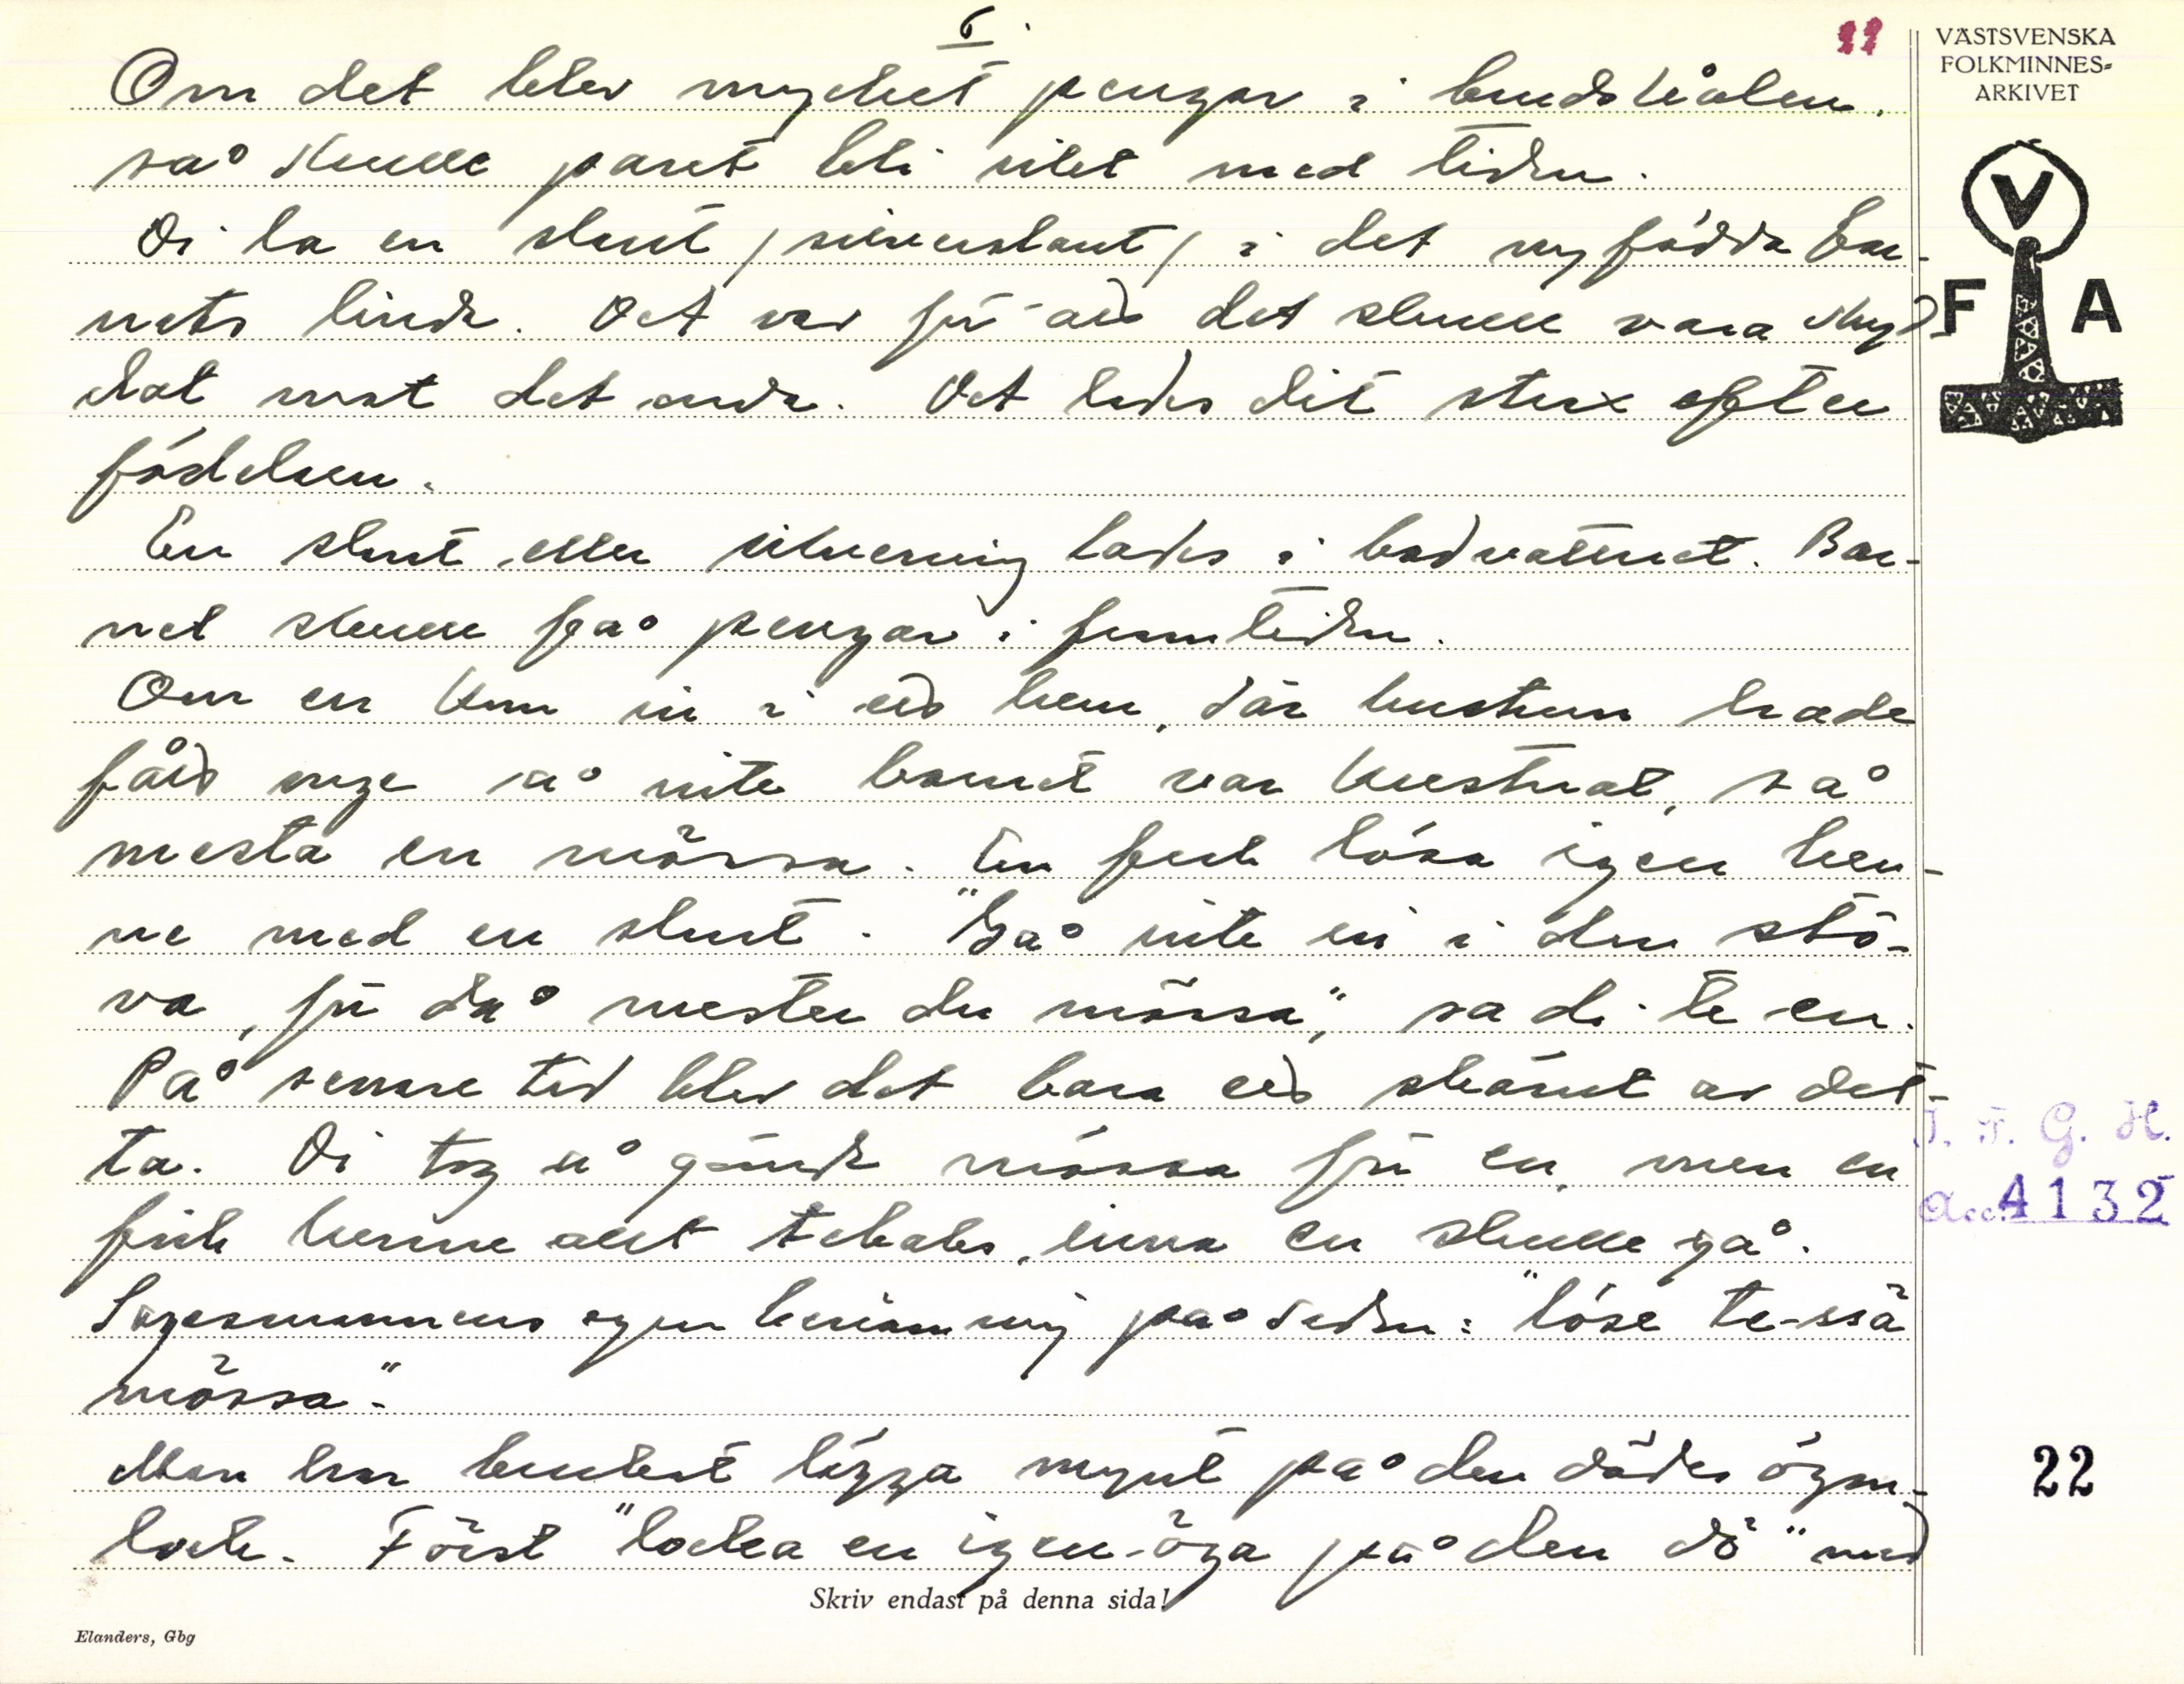 6.
22
VÄSTSVENSKA
FOLKMINNES-
ARKIVET
V
F A
Om det blev mycket pengar i brudskålen,
så skulle paret bli rikt med tiden.
Di la en slant /silverslant/ i det nyfödda bar-
nets linda. Det var för att det skulle vara skyd-
dat mot det onda. Det lades dit strax efter
födelsen.
En slant eller silverring lades i badvattnet. Bar-
net skulle få pengar i framtiden.
Om en kom in i ett hem, där hustrun hade
fått unge så inte barnet var kristnat, så
mesta en mössa. En fick lösa igen hen-
ne med en slant. "Gå inte in i den stö-
va, för då mester du mössa", sa di te en.
På senare tid blev det bara ett skämt av det-
ta. Di tog å gömde mössa för en, men en
fick henne allt tebaks, inna en skulle gå.
Sagesmannens egen benämning på seden: "löse te-ssä
mössa".
Man har brukat lägga mynt på den dödes ögon-
lock. Först "locka en igen-öga på den dö" med
J. F. G. H.
Acc. 4132
22
Skriv endast på denna sida!
Elanders, Gbg